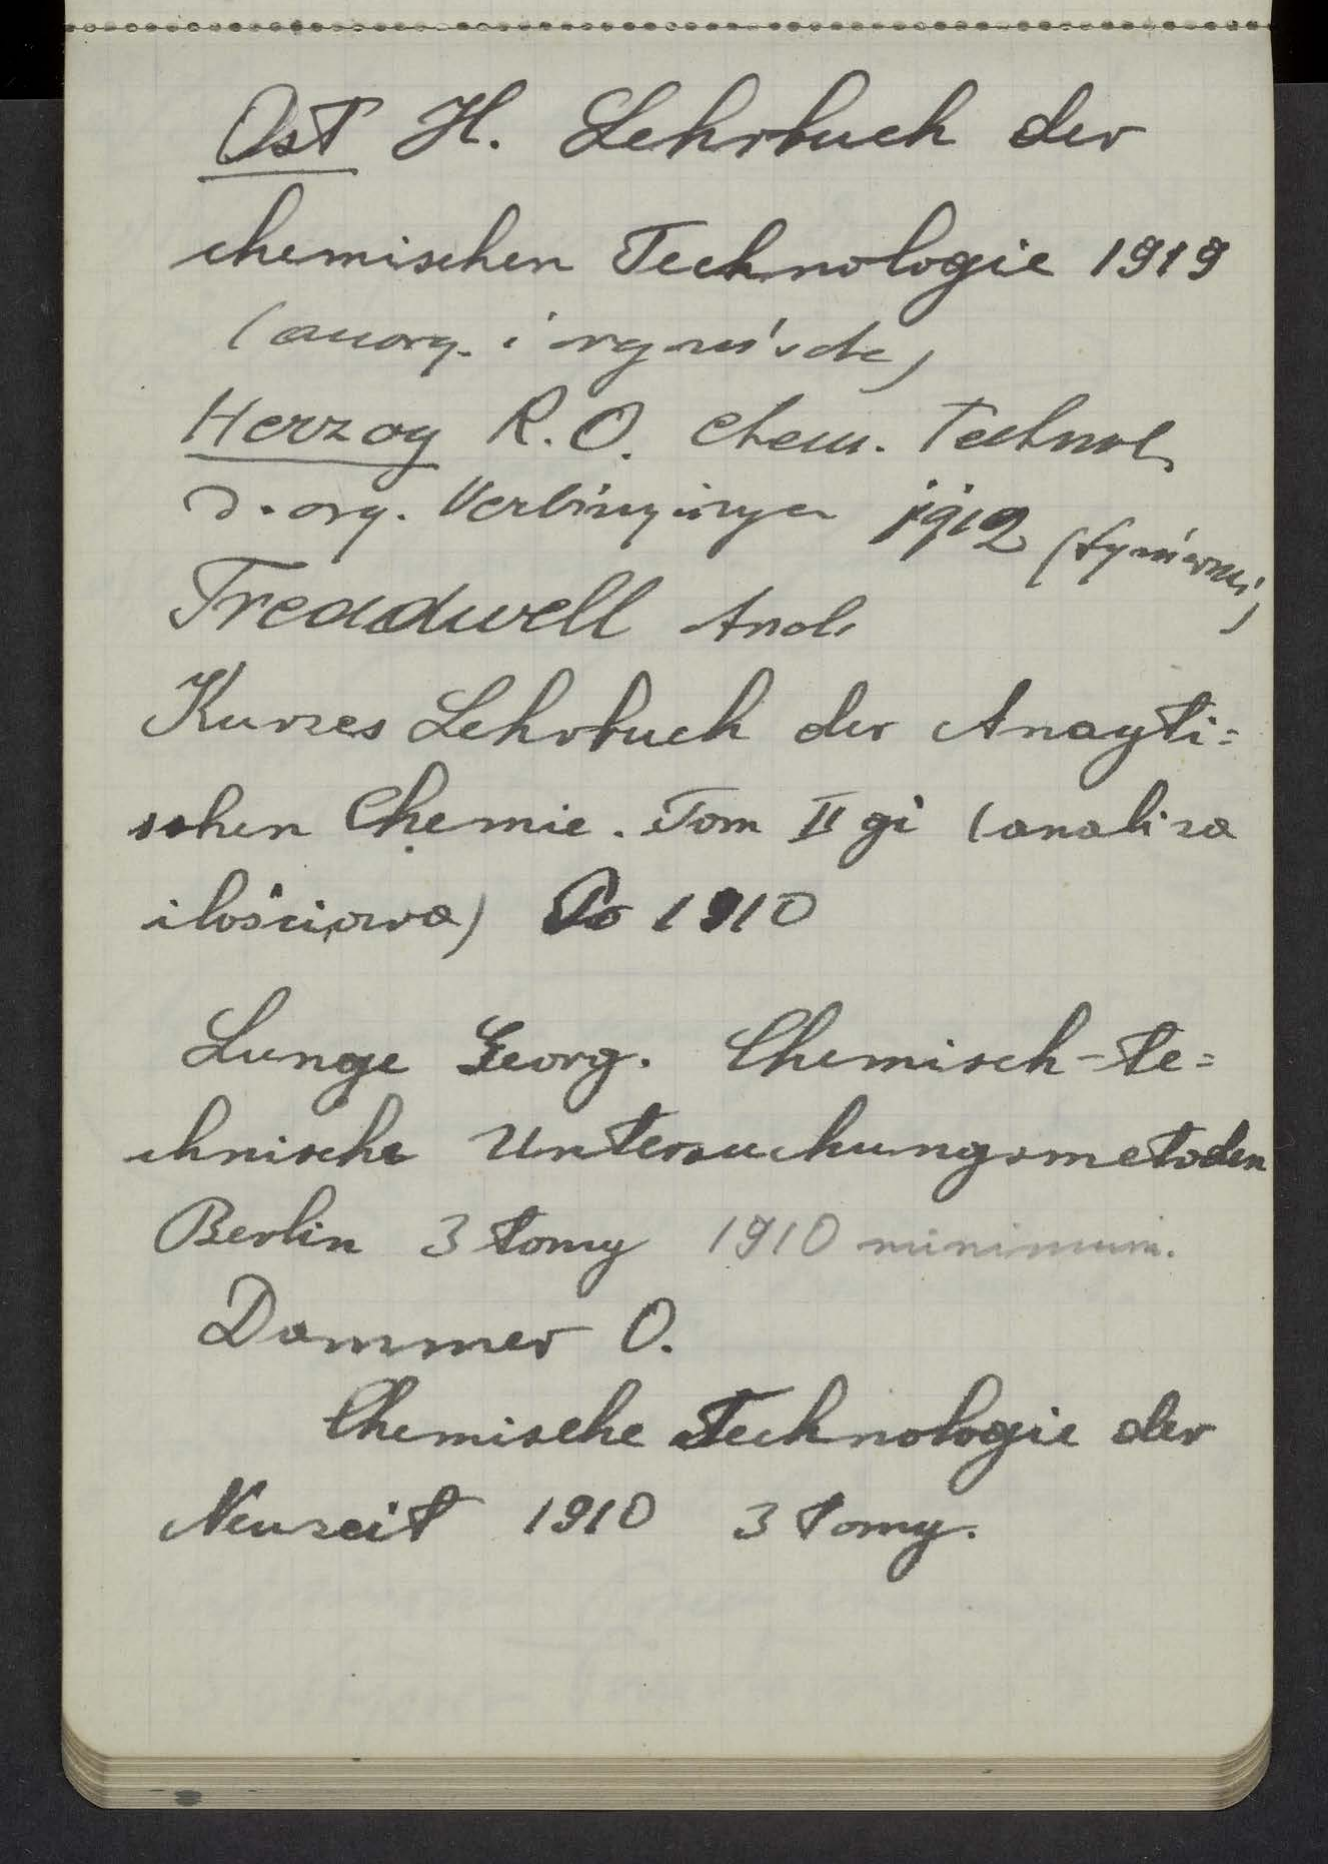 Ost H. Lehrbuch der
chemischen Technologie 1919
(anorg. i organische)
Herzog R.O. Chem. Technol.
d. org. Verbindungen 1912
Treadwell Anal.
Kurzes Lehrbuch der Anayti=
schen Chemie. Tom II gi (analiza
ilościowa) Po 1910
Lunge Georg. Chemisch-te=
chnische Untersuchungsmetoden
Berlin 3 tomy 1910 minimum.
Dammer O.
Chemische Technologie der
Neuzeit 1910 3 tomy.